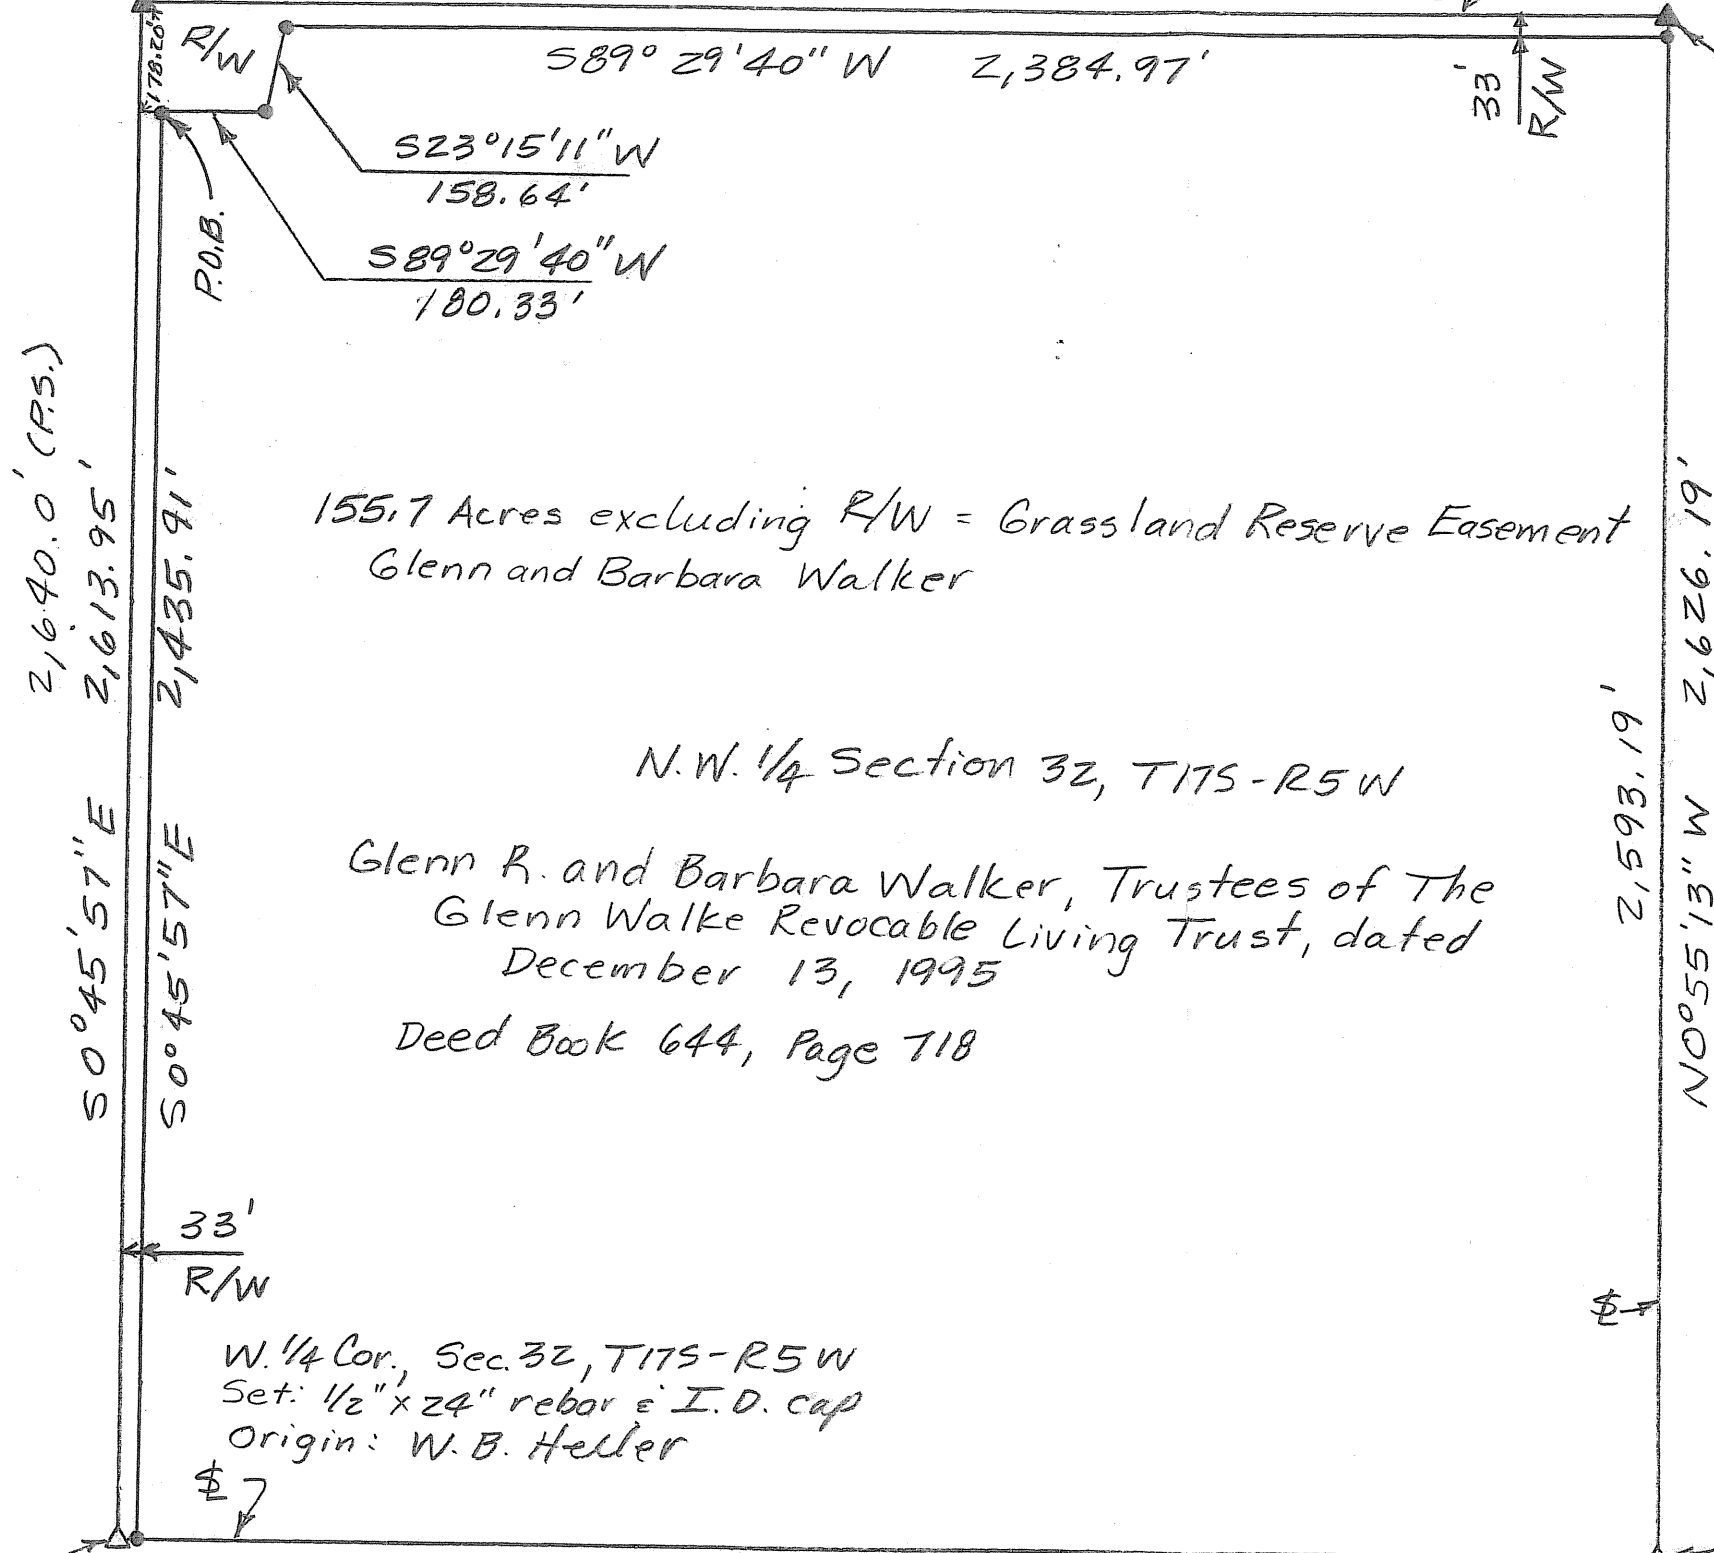 178.20'
R/W
S89° 29'40" W 2,384.97'
33'
R/W
S23°15'11" W
158.64'
S89°29'40" W
180.33'
P.O.B.
2,640.0' (P.S.)
S0°45'57" E 2,613.95'
S0°45'57" E 2,435.91'
155.7 Acres excluding R/W = Grassland Reserve Easement
Glenn and Barbara Walker
N.W. 1/4 Section 32, T17S-R5W
Glenn R. and Barbara Walker, Trustees of The
Glenn Walke Revocable Living Trust, dated
December 13, 1995
Deed Book 644, Page 718
2,593.19'
N0°55'13" W 2,626.19'
33'
R/W
W. 1/4 Cor., Sec. 32, T17S-R5W
Set: 1/2" x 24" rebar & I.D. cap
Origin: W. B. Heller